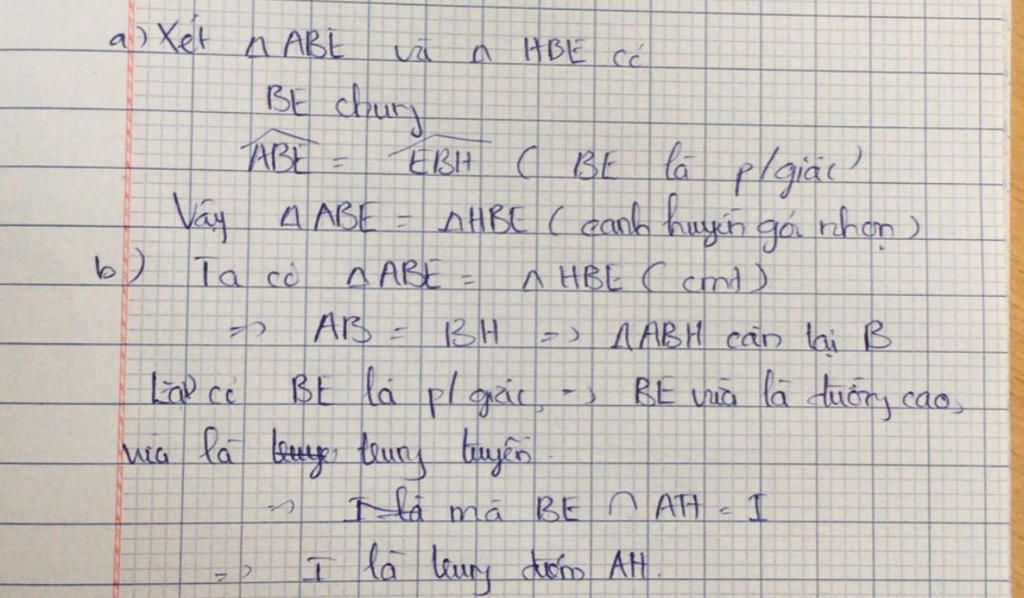 a) Xét △ABE và △ HBE có
BE chung
ABE = EBH ( BE là p/giác)
Vậy △ABE = △HBE ( cạnh huyền góc nhọn)
b) Ta có △ABE = △HBE ( cmt)
=> AB = BH => △ABH cân tại B
Lại có BE là p/giác, => BE vừa là đường cao,
vừa là trung tuyến.
=> I là mà BE ∩ AH = I
=> I là trung điểm AH.